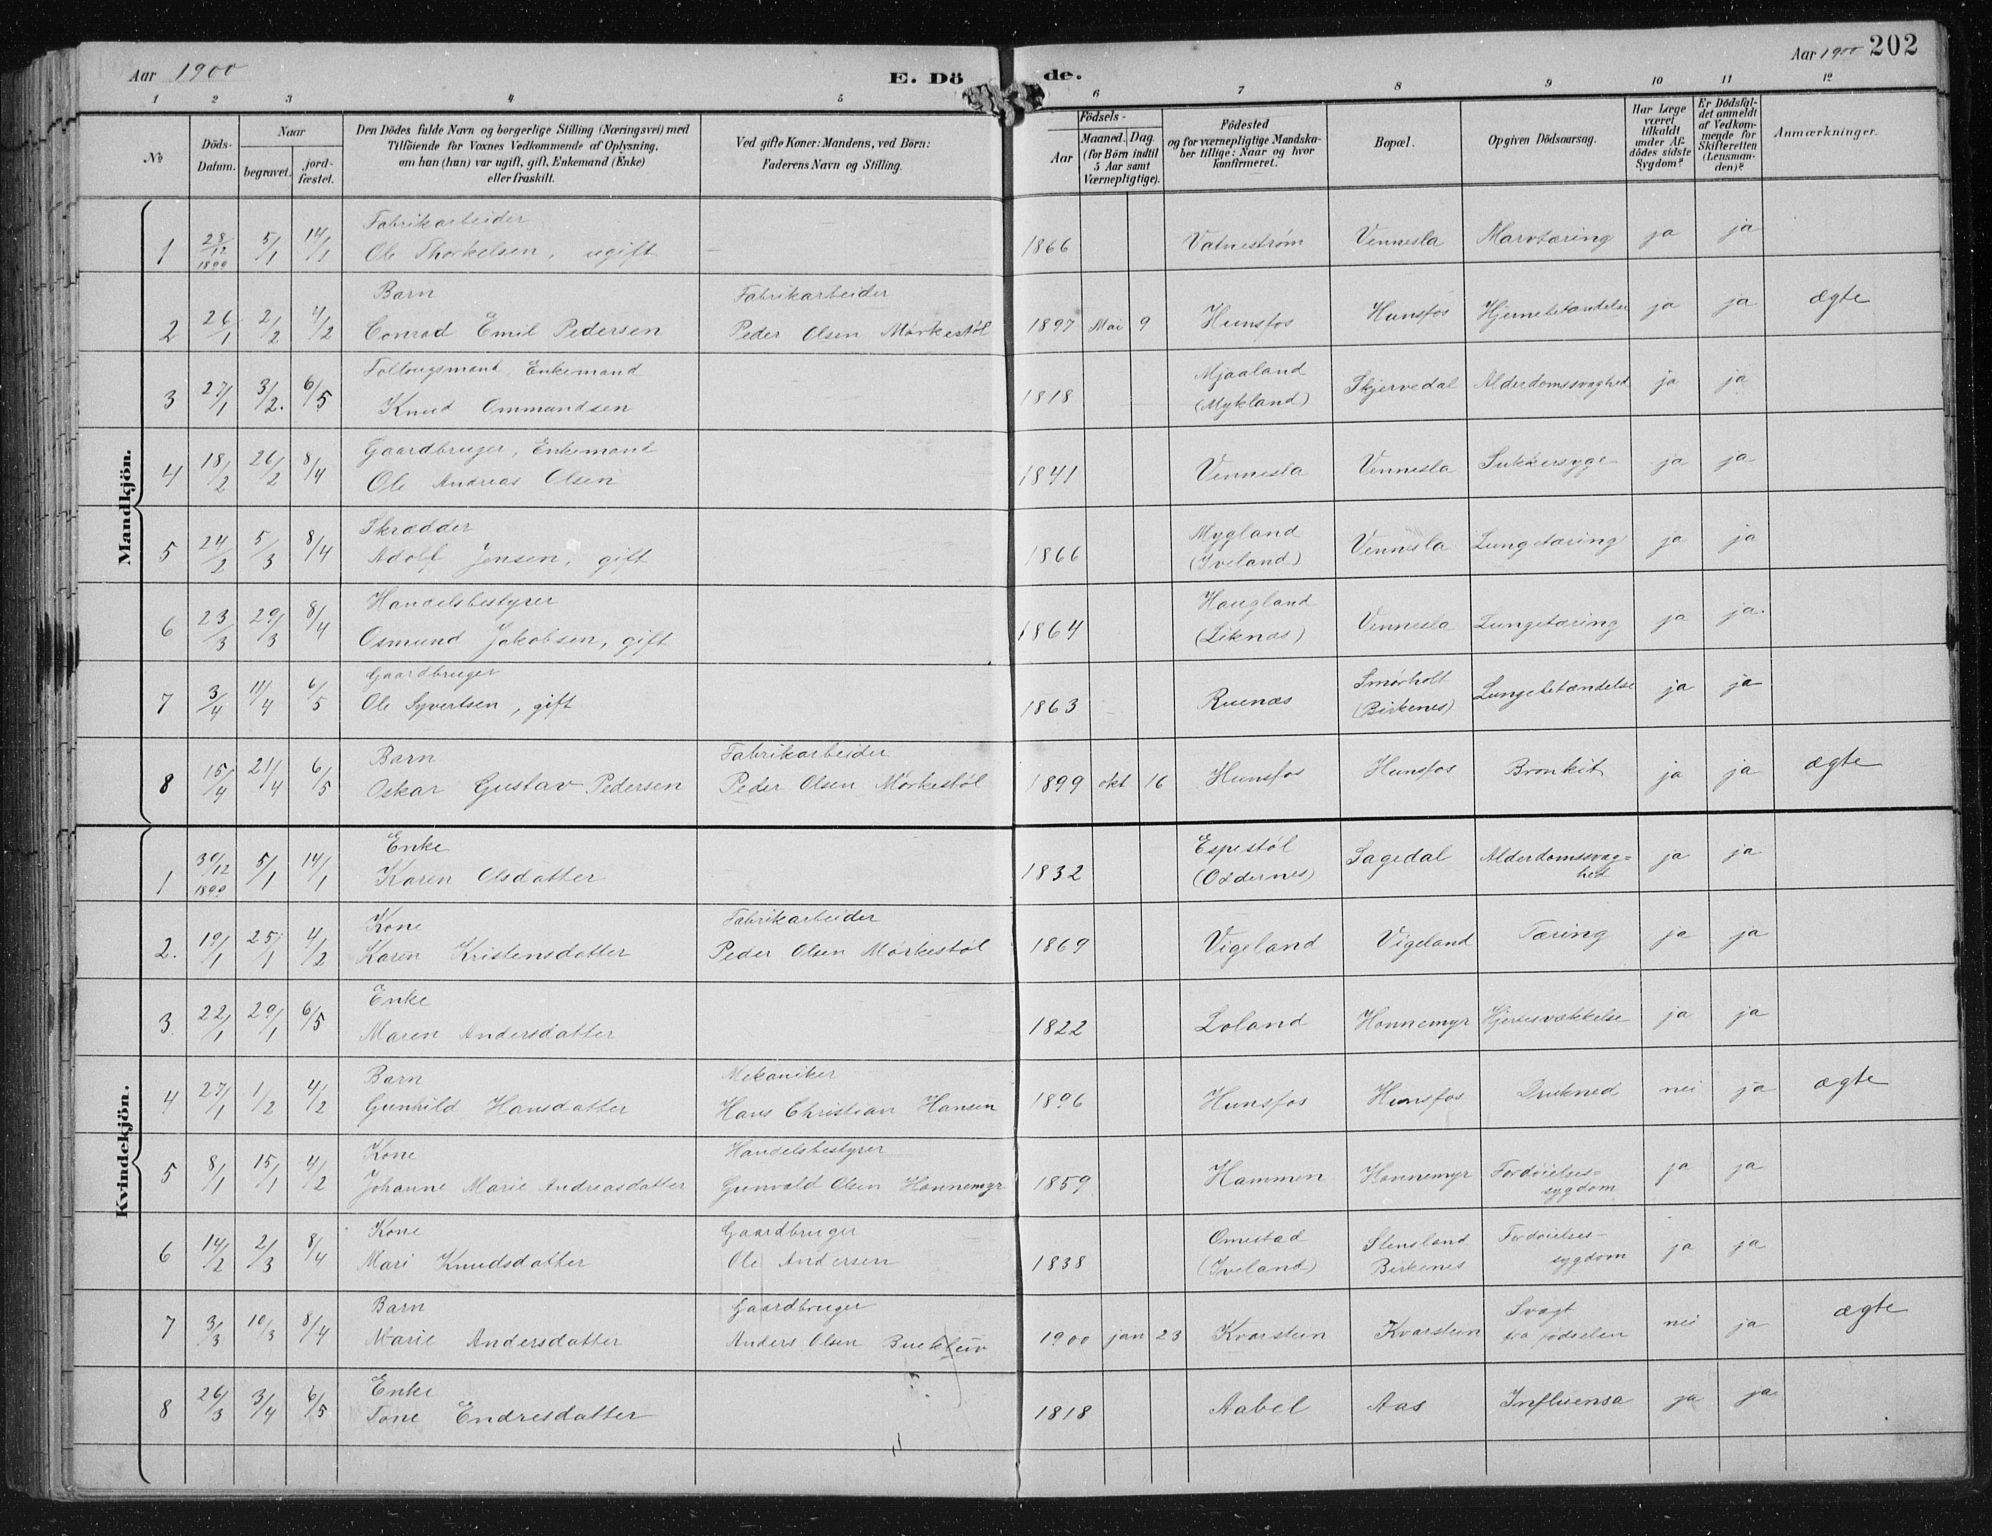 Aar 1900 E. Dö de. Aar 1900 202
1 2 3 4 5 6 7 8 9 10 11 12
No
Döds-Datum.
Naar
begravet.
jord-fæstet.
Den Dödes fulde Navn og borgerlige Stilling (Næringsvei) med
Tilföiende for Voxnes Vedkommende af Oplysning,
om han (hun) var ugift, gift, Enkemand (Enke)
eller fraskilt.
Ved gifte Koner: Mandens, ved Börn:
Faderens Navn og Stilling.
Födsels-
Aar
Maaned. Dag.
(for Börn indtil
5 Aar samt
Værnepligtige).
Födested
og for værnepligtige Mandska-
ber tillige: Naar og hvor
konfirmeret.
Bopæl.
Opgiven Dödsaarsag.
Har Læge
været
tilkaldt
under Af-
dödes sidste
Sygdom?
Er Dödsfal-
det anmeldt
af Vedkom-
mende for
Skifteretten
(Lensman-
den)?
Anmærkninger.
Mandkjön.
Fabrikarbeider
1 28/12 1899 5/1 14/1 Ole Thorkelsen, ugift – 1866 Vatnestrøm Vennesla Marvtæring ja ja
Barn Fabrikarbeider
2 26/1 2/2 4/2 Conrad Emil Pedersen Peder Olsen Mørkestøl 1897 Mai 9 Hunsfos Hunsfos Hjernebetændelse ja ja ægte
Foltougsmand, Enkemand Mjaaland
3 27/1 3/2. 6/5 Knud Ommundsen 1818 (Mykland) Skjervedal Alderdomssvaghed ja ja
Gaardbruger, Enkemand
4 18/2 26/2 8/4 Ole Andreas Olsen 1841 Vennesla Vennesla Sukkersyge ja ja
Skrædder Mygland
5 24/2 5/3 8/4 Adolf Jensen, gift 1866 (Iveland) Vennesla Lungetæring ja ja
Handelsbestyrer Haugland
6 23/3 29/3 8/4 Osmund Jakobsen, gift 1864 (Liknæs) Vennesla Lungetæring ja ja.
Gaardbruger Smørholt
7 3/4 11/4 6/5 Ole Syvertsen, gift 1863 Ruenæs (Birkenes) Lungebetændelse ja ja
Barn Fabrikarbeider
8 15/4 21/4 6/5 Oskar Gustav Pedersen Peder Olsen Mørkestøl 1899 okt 16 Hunsfos Hunsfos Bronkit ja ja ægte
Kvindekjön.
Enke Espestøl
1 30/12 1899 5/1 14/1 Karen Olsdatter 1832 (Oddernes) Sagedal Alderdomssvag=
hed ja ja
Kone Fabrikarbeider
2. 19/1 25/1 4/2 Karen Kristensdatter Peder Olsen Mørkestøl 1869 Vigeland Vigeland Tæring ja ja
Enke
3 22/1 29/1 6/5 Maren Andersdatter 1822 Loland Honnemyr Hjertesvækkelse ja ja
Barn Mekaniker
4 27/1 1/2 4/2 Gunhild Hansdatter Hans Christian Hansen 1896 Hunsfos Hunsfos Drukned nei ja ægte
Kone Handelsbestyrer
5 8/1 15/1 4/2 Johanne Marie Andreasdatter Gunvald Olsen Honnemyr 1859 Hammen Honnemyr Fordøielses-
sygdom ja ja
Kone Gaardbruger Omestad Stensland Fordøielses-
6 14/2 2/3 8/4 Mari Knudsdatter Ole Andersen 1838 (Iveland) Birkenes sygdom ja ja
Barn Gaardbruger Svagt
7 3/3 10/3 8/4 Marie Andersdatter Anders Olsen 1900 jan 23 Kvarstein Kvarstein fra fødselen nei ja ægte
Enke
8 26/3 3/4 6/5 Tone Endresdatter 1818 Aabel Aas Influensa ja ja